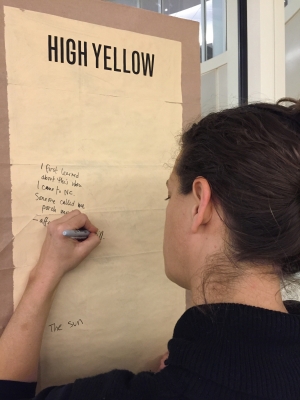 HIGH YELLOW
I first learned
about this when
I came to
Someone called me
The sun